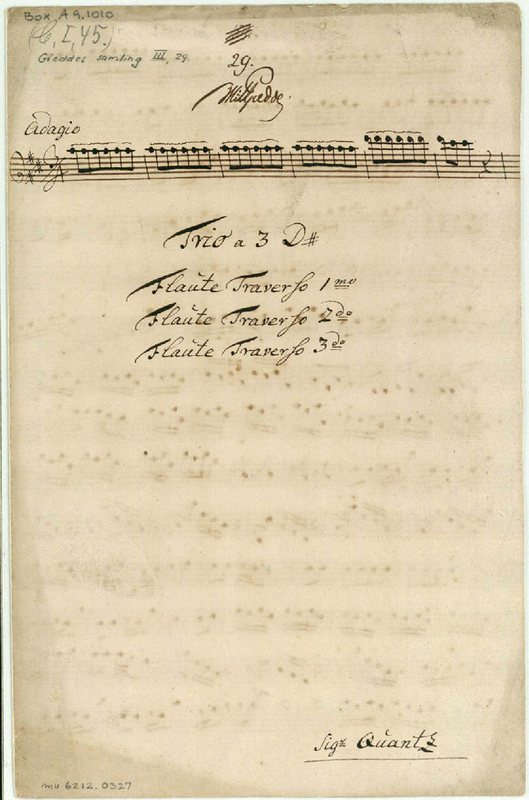 Box A 9.1010
(C, I, 45.)
Gieddes samling III, 29.
29.
WHRGiedde.
Adagio
Trio a 3 D#
Flaute Traverso 1mo
Flaute Traverso 2do
Flaute Traverso 3do
Sigr Quantz
mu 6212.0327